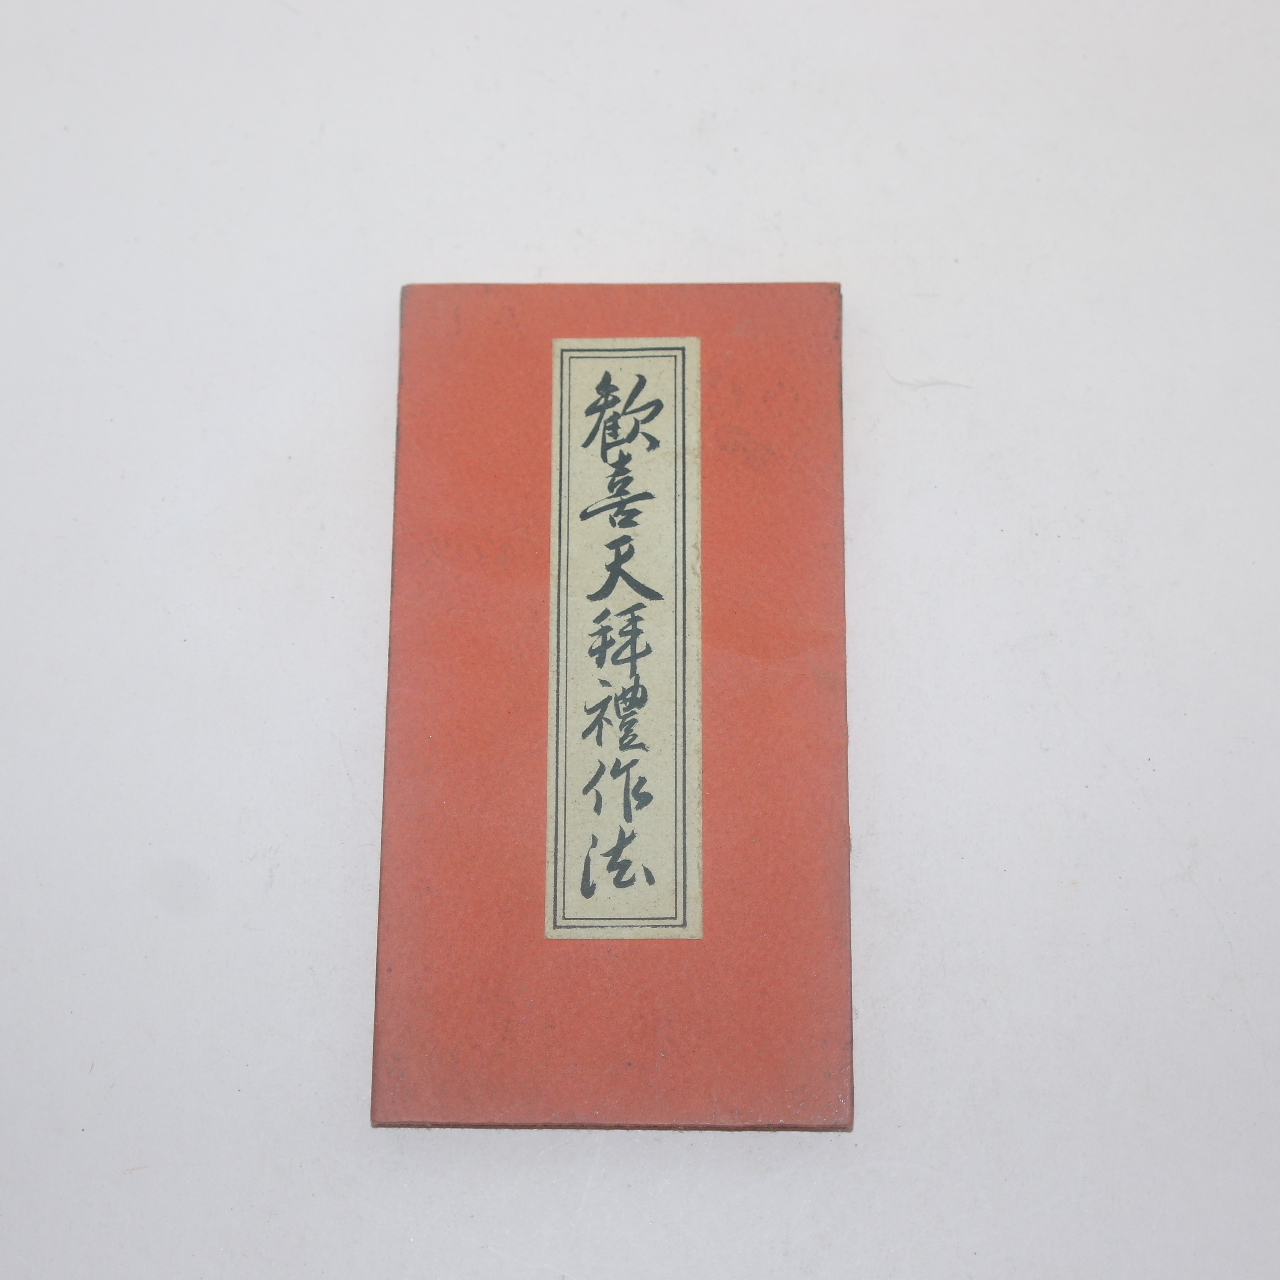 歓喜天拜禮作法